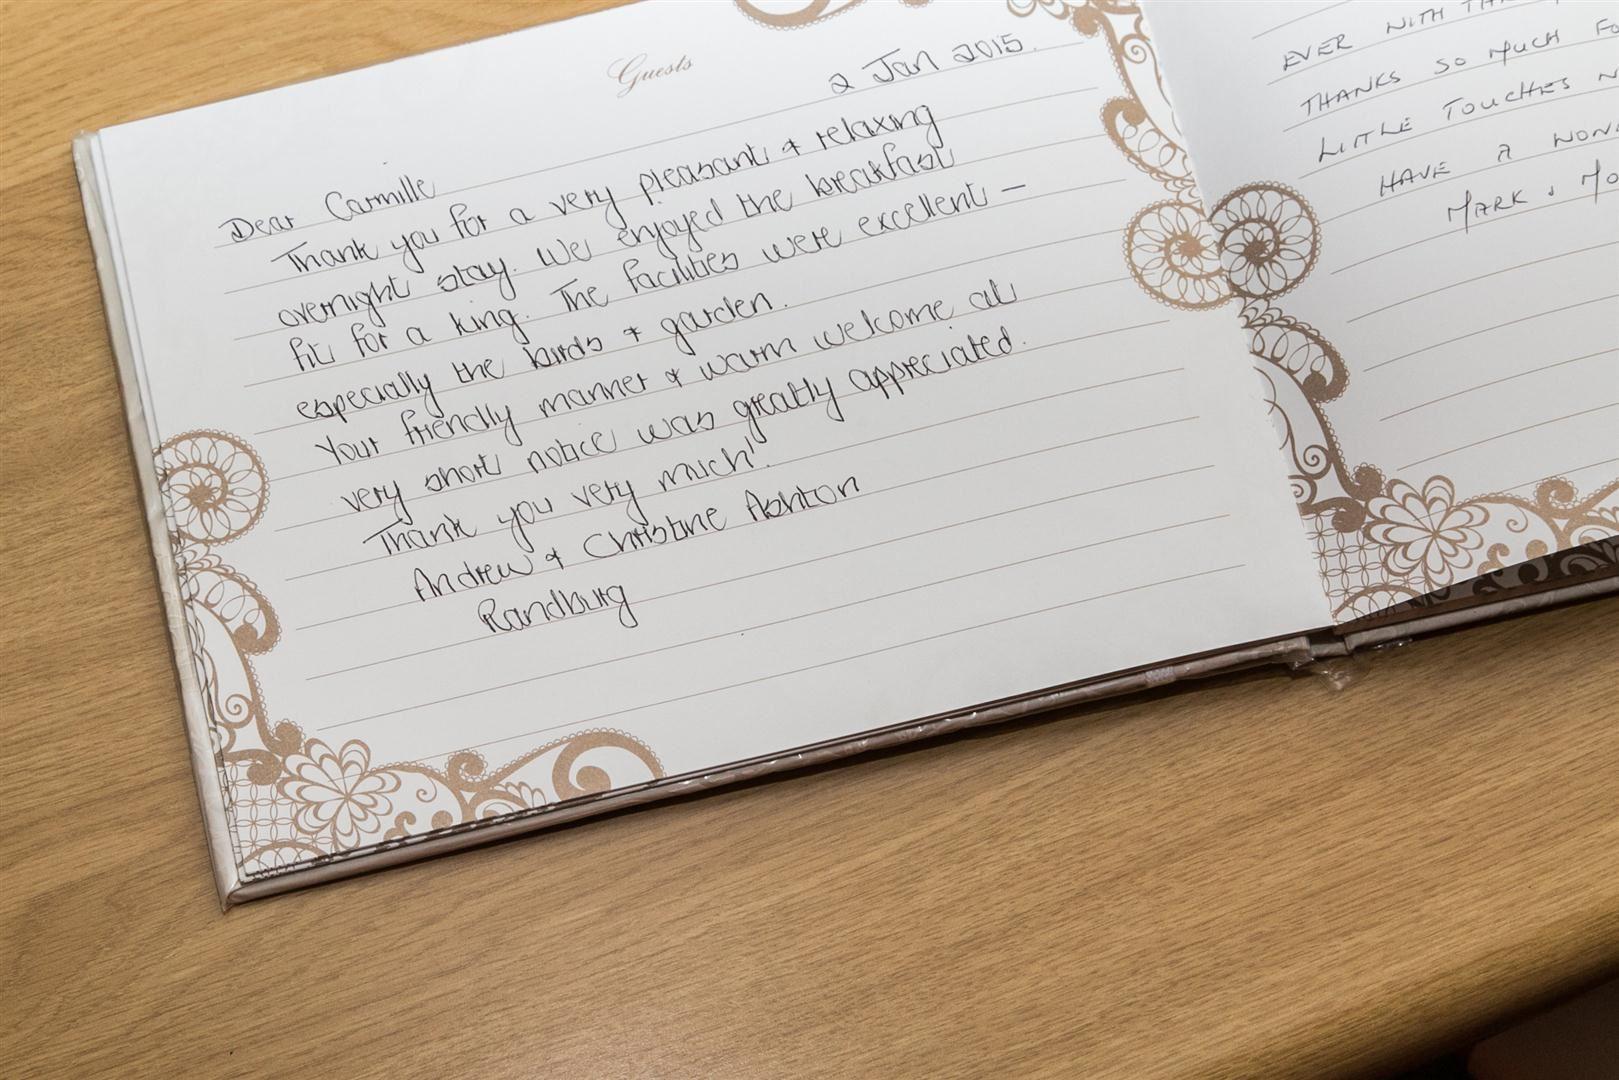 Guests
2 Jan 2015.
Dear Carmille
Thank you for a very pleasant & relaxing
overnight stay. We enjoyed the breakfast
fit for a king. The facilities were excellent –
especially the birds & garden.
Your friendly manner & warm welcome at
very short notice was greatly appreciated.
Thank you very much!
Andrew & Christine Ashton
Randburg
EVER WITH
THANKS SO MUCH
LITTLE TOUCHES
HAVE A
MARK &